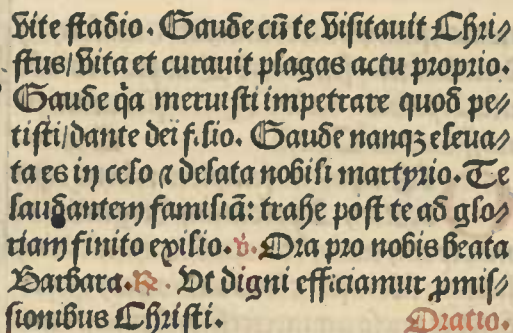 vite stadio. Gaude cũ te visitauit Chri⸗
stus/ vita et curauit plagas actu proprio.
Gaude q̃a meruisti impetrare quod pe⸗
tisti/ dante dei filio. Gaude nanqꝫ eleua⸗
ta es in celo ⁊ delata nobili martyrio. Te
laudantem familiã: trahe post te ad glo⸗
riam finito exilio. v. Ora pro nobis beata
Barbara. ℞. Vt digni efficiamur ꝓmis⸗
sionibus Christi. Oratio.